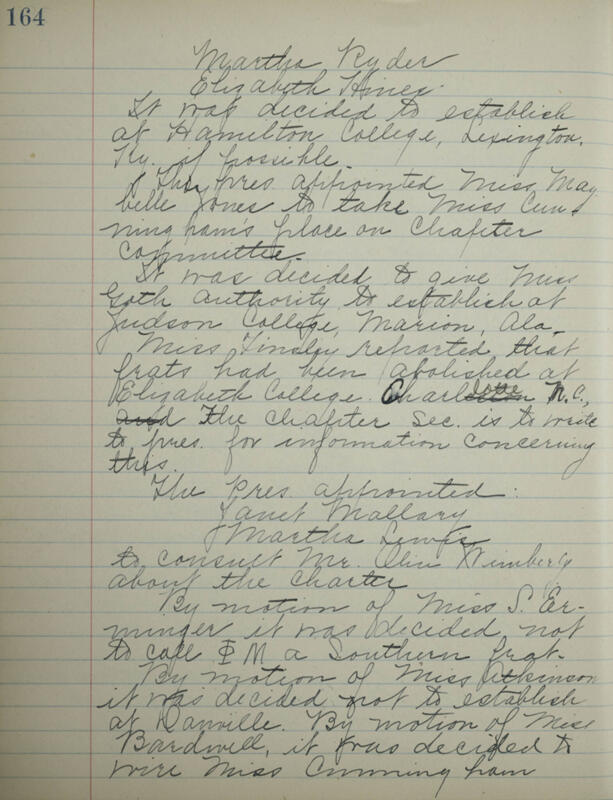 164
Martha Ryder
Elizabeth Hines.
It was decided to establish
at Hamilton College, Lexington,
Ky. if possible.
The pres. appointed Miss May
belle Jones to take Miss Cun-
ninghams place on Chapter
Committee.
It was decided to give Miss
Goth authority to establish at
Judson College, Marion, Ala.
Miss Tinsley reported that
frats had been abolished at
Elizabeth College. Charlotte N.C.,
and The chapter Sec. is to write
to pres. for information concerning
this.
The Pres. appointed:
Janet Mallary
Martha Lewis
to consult Mr. Olin Wimberly
about the charter
By motion of Miss S. Er-
minger it was decided not
to call ΦM a Southern frat.
By motion of Miss Atkinson
it was decided not to establish
at Danville. By motion of Miss
Bardwell, it was decided to
wire Miss Cunningham